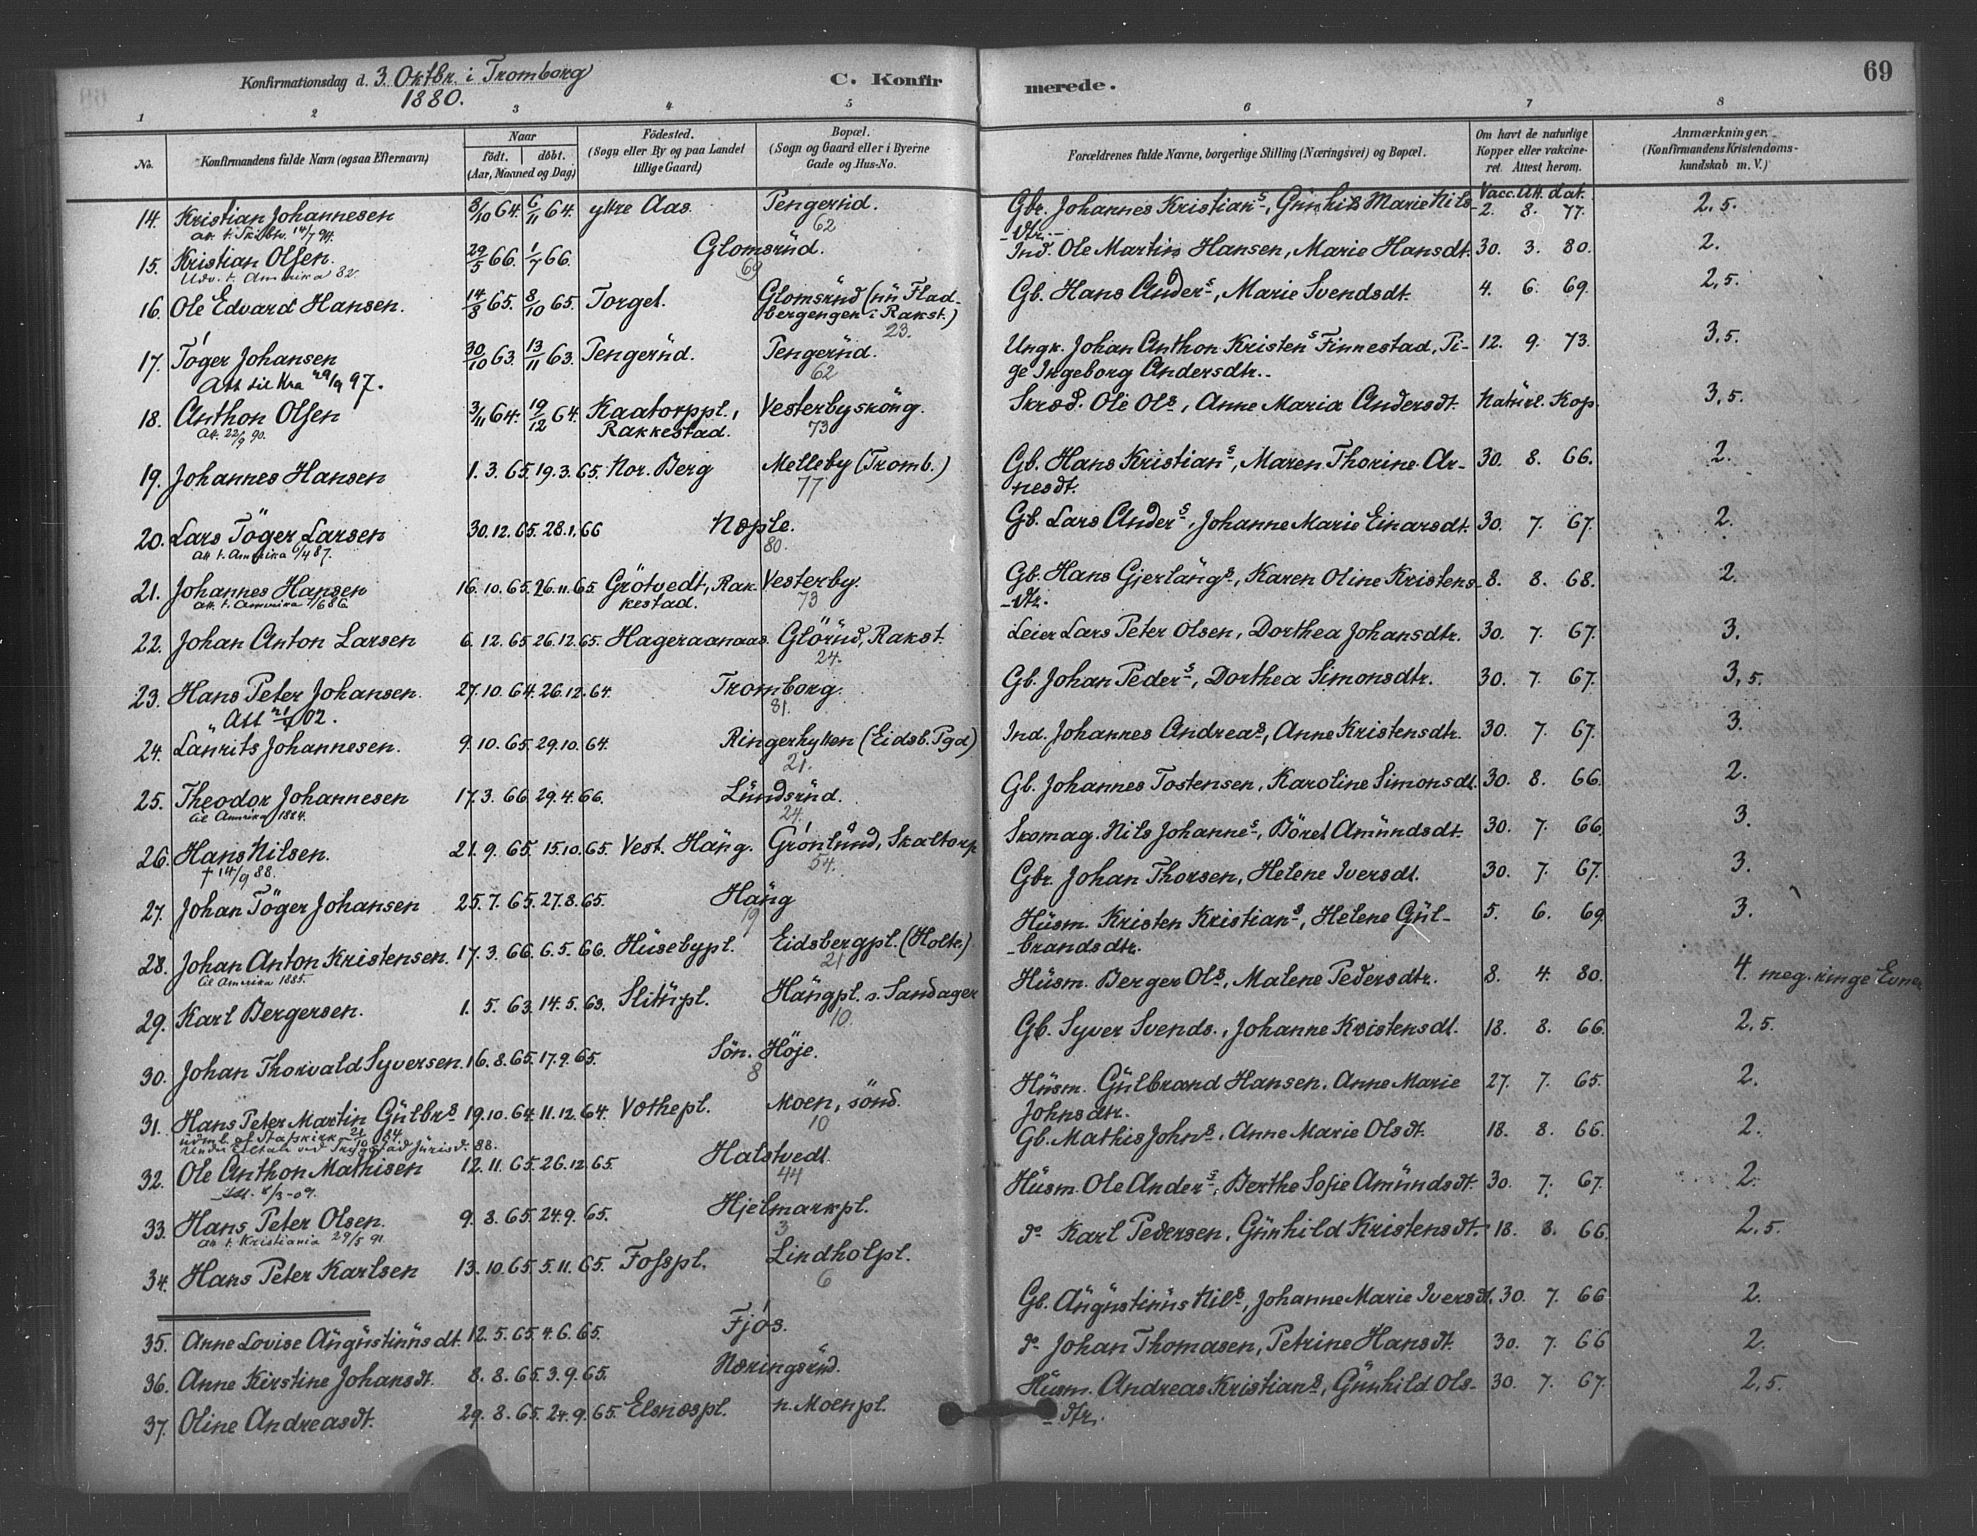 Konfirmationsdag d. 3. Oktbr. i Tromborg
1880.
C. Konfir
merede.
69
1 2 3 4 5 6 7 8
No. Konfirmandens fulde Navn (ogsaa Efternavn) Naar født. døbt. (Aar, Maaned og Dag) Fødested. (Sogn eller By og paa Landet tillige Gaard) Bopæl. (Sogn og Gaard eller i Byerne Gade og Hus-No. Forældrenes fulde Navne, borgerlige Stilling (Næringsvei) og Bopæl. Om havt de naturlige Kopper eller vakcineret. Attest herom. Anmærkninger. (Konfirmandens Kristendomskundskab m. V.)
Vacc. Att. dat.
14. Kristian Johannesen 8/10 64. 6/11 64. yttre Aas Pengerüd. Gbr. Johannes Kristians, Günhil Marie Nils- 2. 8. 77. 2,5.
62
-dtr.-
15. Kristian Olsen. 29/5 66. 1/7 66. Glomsrüd. Ind. Ole Martin Hansen, Marie Hansdt. 30. 3. 80. 2.
Udv. t. Amerika 82. 69
16. Ole Edvard Hansen. 14/8 65. 8/10 65. Torget. Glomsrüd (nü Flad- Gb. Hans Anders, Marie Svendsdt. 4. 6. 69. 2,5.
bergengen i Rakst.)
23.
17. Tøger Johansen 30/10 63. 13/11 63. Pengerüd. Pengerüd. Ungk. Johan Anthon Kristens Finnestad, Pi- 12. 9. 73. 3,5.
Att til Kra 29/9 97. 62 ge Ingeborg Andersdtr.
18. Anthon Olsen 3/11 64. 19/12 64. Kaatorppl., Vesterbyskóng. Skræd. Ole Ols, Anne Maria Andersdt. Natürl. Kop. 3,5.
Att. 22/9 90. Rakkestad. 73
19. Johannes Hansen 1. 3. 65. 19. 3. 65. Nor. Berg Melleby (Tromb.) Gb. Hans Kristians, Maren Thorine Ar- 30. 8. 66. 2.
77 nesdt.
20. Lars Tøger Larsen 30. 12. 65. 28. 1. 66 Næple. Gb. Lars Anders, Johanne Marie Einarsdt. 30. 7. 67. 2.
Att. t. Amerika 6/4 87. 80.
21. Johannes Hansen 16. 10. 65. 26. 11. 65. Grötvedt, Rak- Vesterby. Gb. Hans Gjerlängs, Karen Oline Kristens- 8. 8. 68. 2.
Att. t. Amerika 7/6 86. kestad. 73 -dtr.
22. Johan Anton Larsen 6. 12. 65. 26. 12. 65. Hageraanaas. Glörüd, Rakst. Leier Lars Peter Olsen, Dorthea Johansdtr. 30. 7. 67. 3.
24.
23. Hans Peter Johansen. 27. 10. 64. 26. 12. 64. Tromborg. Gb. Johan Peders, Dorthea Simonsdtr. 30. 7. 67. 3,5.
81.
24. Laürits Johannesen. 9. 10. 65. 29. 10. 64. Ringerhytten (Eidsb. Pgd) Ind. Johannes Andreas, Anne Kristensdtr. 30. 7. 67. 3.
21.
25. Theodor Johannesen 17. 3. 66. 29. 4. 66. Lündsrüd. Gb. Johannes Tostensen, Karoline Simonsdt. 30. 8. 66. 2.
til Amerika 1884. 24.
26. Hans Nilsen. 21. 9. 65. 15. 10. 65. Vest. Häng. Grønlünd, Skaltorp Skomag. Nils Johannes, Böret Amündsdt. 30. 7. 66. 3.
† 14/9 88. 54.
27. Johan Tøger Johansen 25. 7. 65. 27. 8. 65. Häng Gbr. Johan Thorsen, Helene Iversdt. 30. 7. 67. 3.
19
28. Johan Anton Kristensen. 17. 3. 66. 6. 5. 66. Hüsebypl. Eidsbergpl. (Holte.) Hüsm. Kristen Kristians, Helene Gül- 5. 6. 69 3.
til Amerika 1885. 21 -brandsdtr.
29. Karl Bergersen. 1. 5. 63. 14. 5. 63. Slitüpl. Hängpl. s. Sandager Hüsm. Berger Ols, Malene Pedersdtr. 8. 4. 80. 4. meg. ringe Evner
10.
30. Johan Thorvald Syversen. 16. 8. 65. 17. 9. 65. Søn. Høje. Gb. Syver Svends., Johanne Kristensdt. 18. 8. 66. 2,5.
8
31. Hans Peter Martin Gülbrs 19. 10. 64. 11. 12. 64. Vothepl. Moen, sønd. Hüsm. Gülbrand Hansen. Anne Marie 27. 7. 65. 2.
10 Johnsdtr.
32. Ole Anthon Mathisen 12. 11. 65. 26. 12. 65. Halstvedt Gb. Mathis Johns, Anne Marie Olsdt. 18. 8. 66. 2.
44
33. Hans Peter Olsen. 9. 8. 65. 24. 9. 65. Hjelmarkpl. Hüsm. Ole Anders, Berthe Sofie Amündsdt. 30. 7. 67. 2.
Att. t. Kristiania 29/5 91. 3
34. Hans Peter Karlsen 13. 10. 65. 5. 11. 65. Fosspl. Lindholpl. do Karl Pedersen, Günhild Kristensdt. 18. 8. 66. 2,5.
6
35. Anne Lovise Aügüstinüsdt. 12. 5. 65. 4. 6. 65. Fjós. Gb. Aügüstinüs Nils, Johanne Marie Iversdt. 30. 7. 66 2.
36. Anne Kirstine Johansdt. 8. 8. 65. 3. 9. 65. Næringsrüd. do Johan Thomasen, Petrine Hansdt. 30. 7. 66 2.
37. Oline Andreasdt. 29. 8. 65. 24. 9. 65. Elsnæspl. n. Moenpl. Hüsm. Andreas Kristians, Günhild Ols- 30. 7. 67. 2,5.
-dtr.